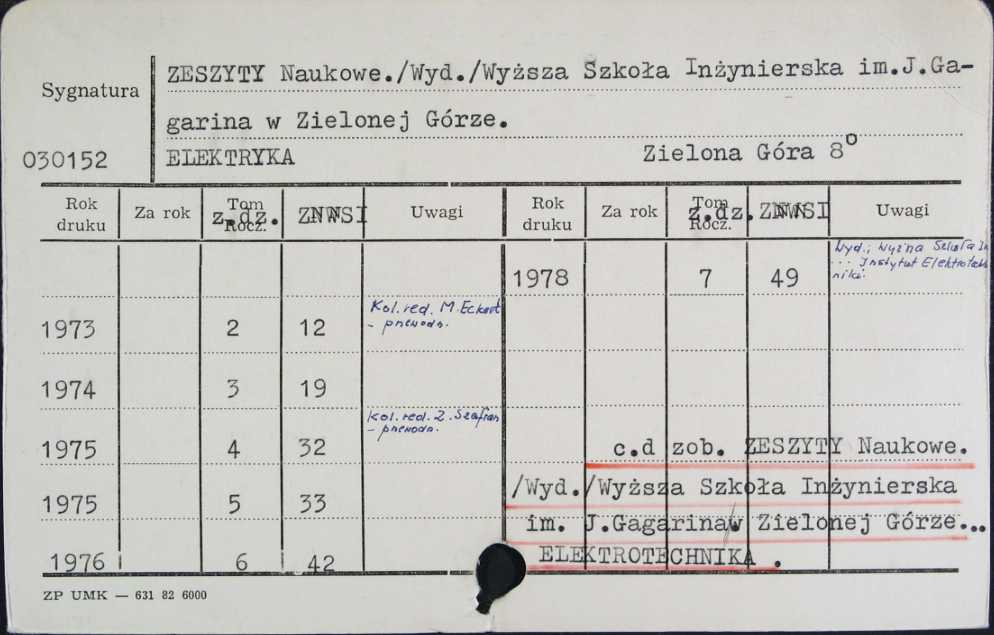 ZESZYTY Naukowe./Wyd./Wyższa Szkoła Inżynierska im.J.Ga-
Sygnatura
garina w Zielonej Górze.
030152 ELEKTRYKA Zielona Góra 8°
Rok druku Za rok Tom Rocz. z.dz. ZNWSI Uwagi Rok druku Za rok Tom Rocz. z.dz. ZNWSI Uwagi
1978 7 49 Wyd.; Wyższa Szkoła In
... Instytut Elektrotech
niki.
1973 2 12 Kol. red. M. Eckert
- przewodn.
1974 3 19
1975 4 32 Kol. red. Z. Szafran
- przewodn.
c.d zob. ZESZYTY Naukowe.
1975 5 33 /Wyd./Wyższa Szkoła Inżynierska
im. J.Gagarina/w Zielonej Górze...
1976 6 42 ELEKTROTECHNIKA .
ZP UMK — 631 82 6000